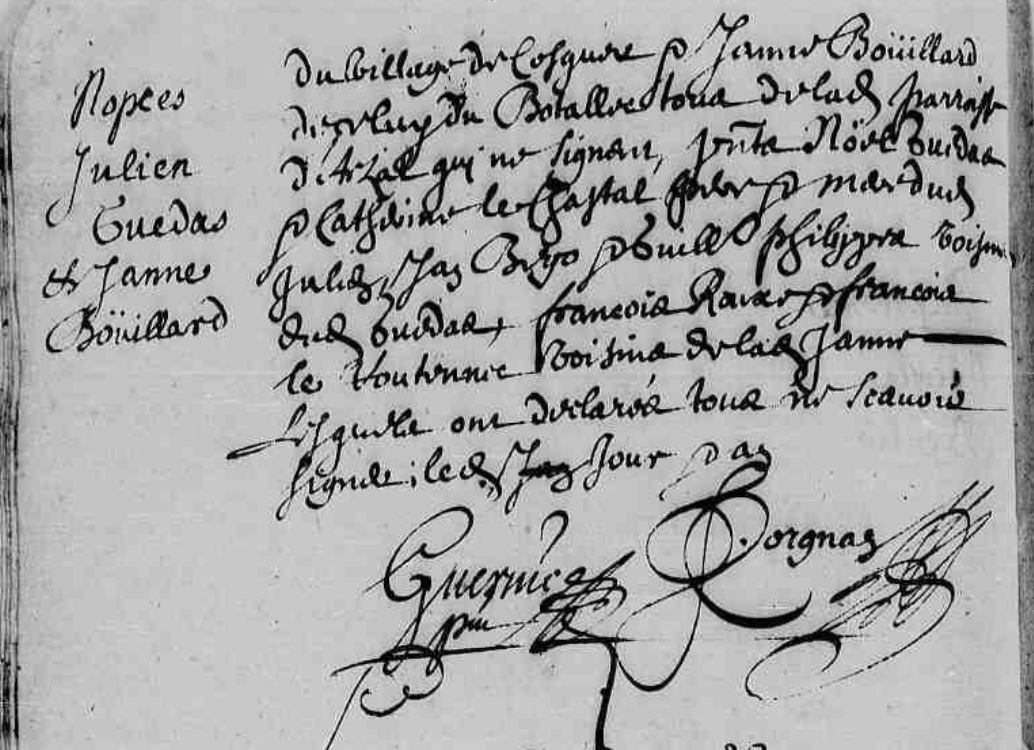 Nopces
Julien
Guedas
& Janne
Boüillard
du village de Cosquer & Janne Boüillard
de celuy du Botallec tous de lad parroisse
d'Arzal qui ne signent, pnts Nöel Guedas
& Catherine le Chastal pere & mere dud
Julien, Jan & Guill Philippes voisins
dud Guedas, francois & francois
le voisins de lad Janne
Lesquels ont declarés tous ne scavoir
signer, lesd Jour & an
Dorgnan